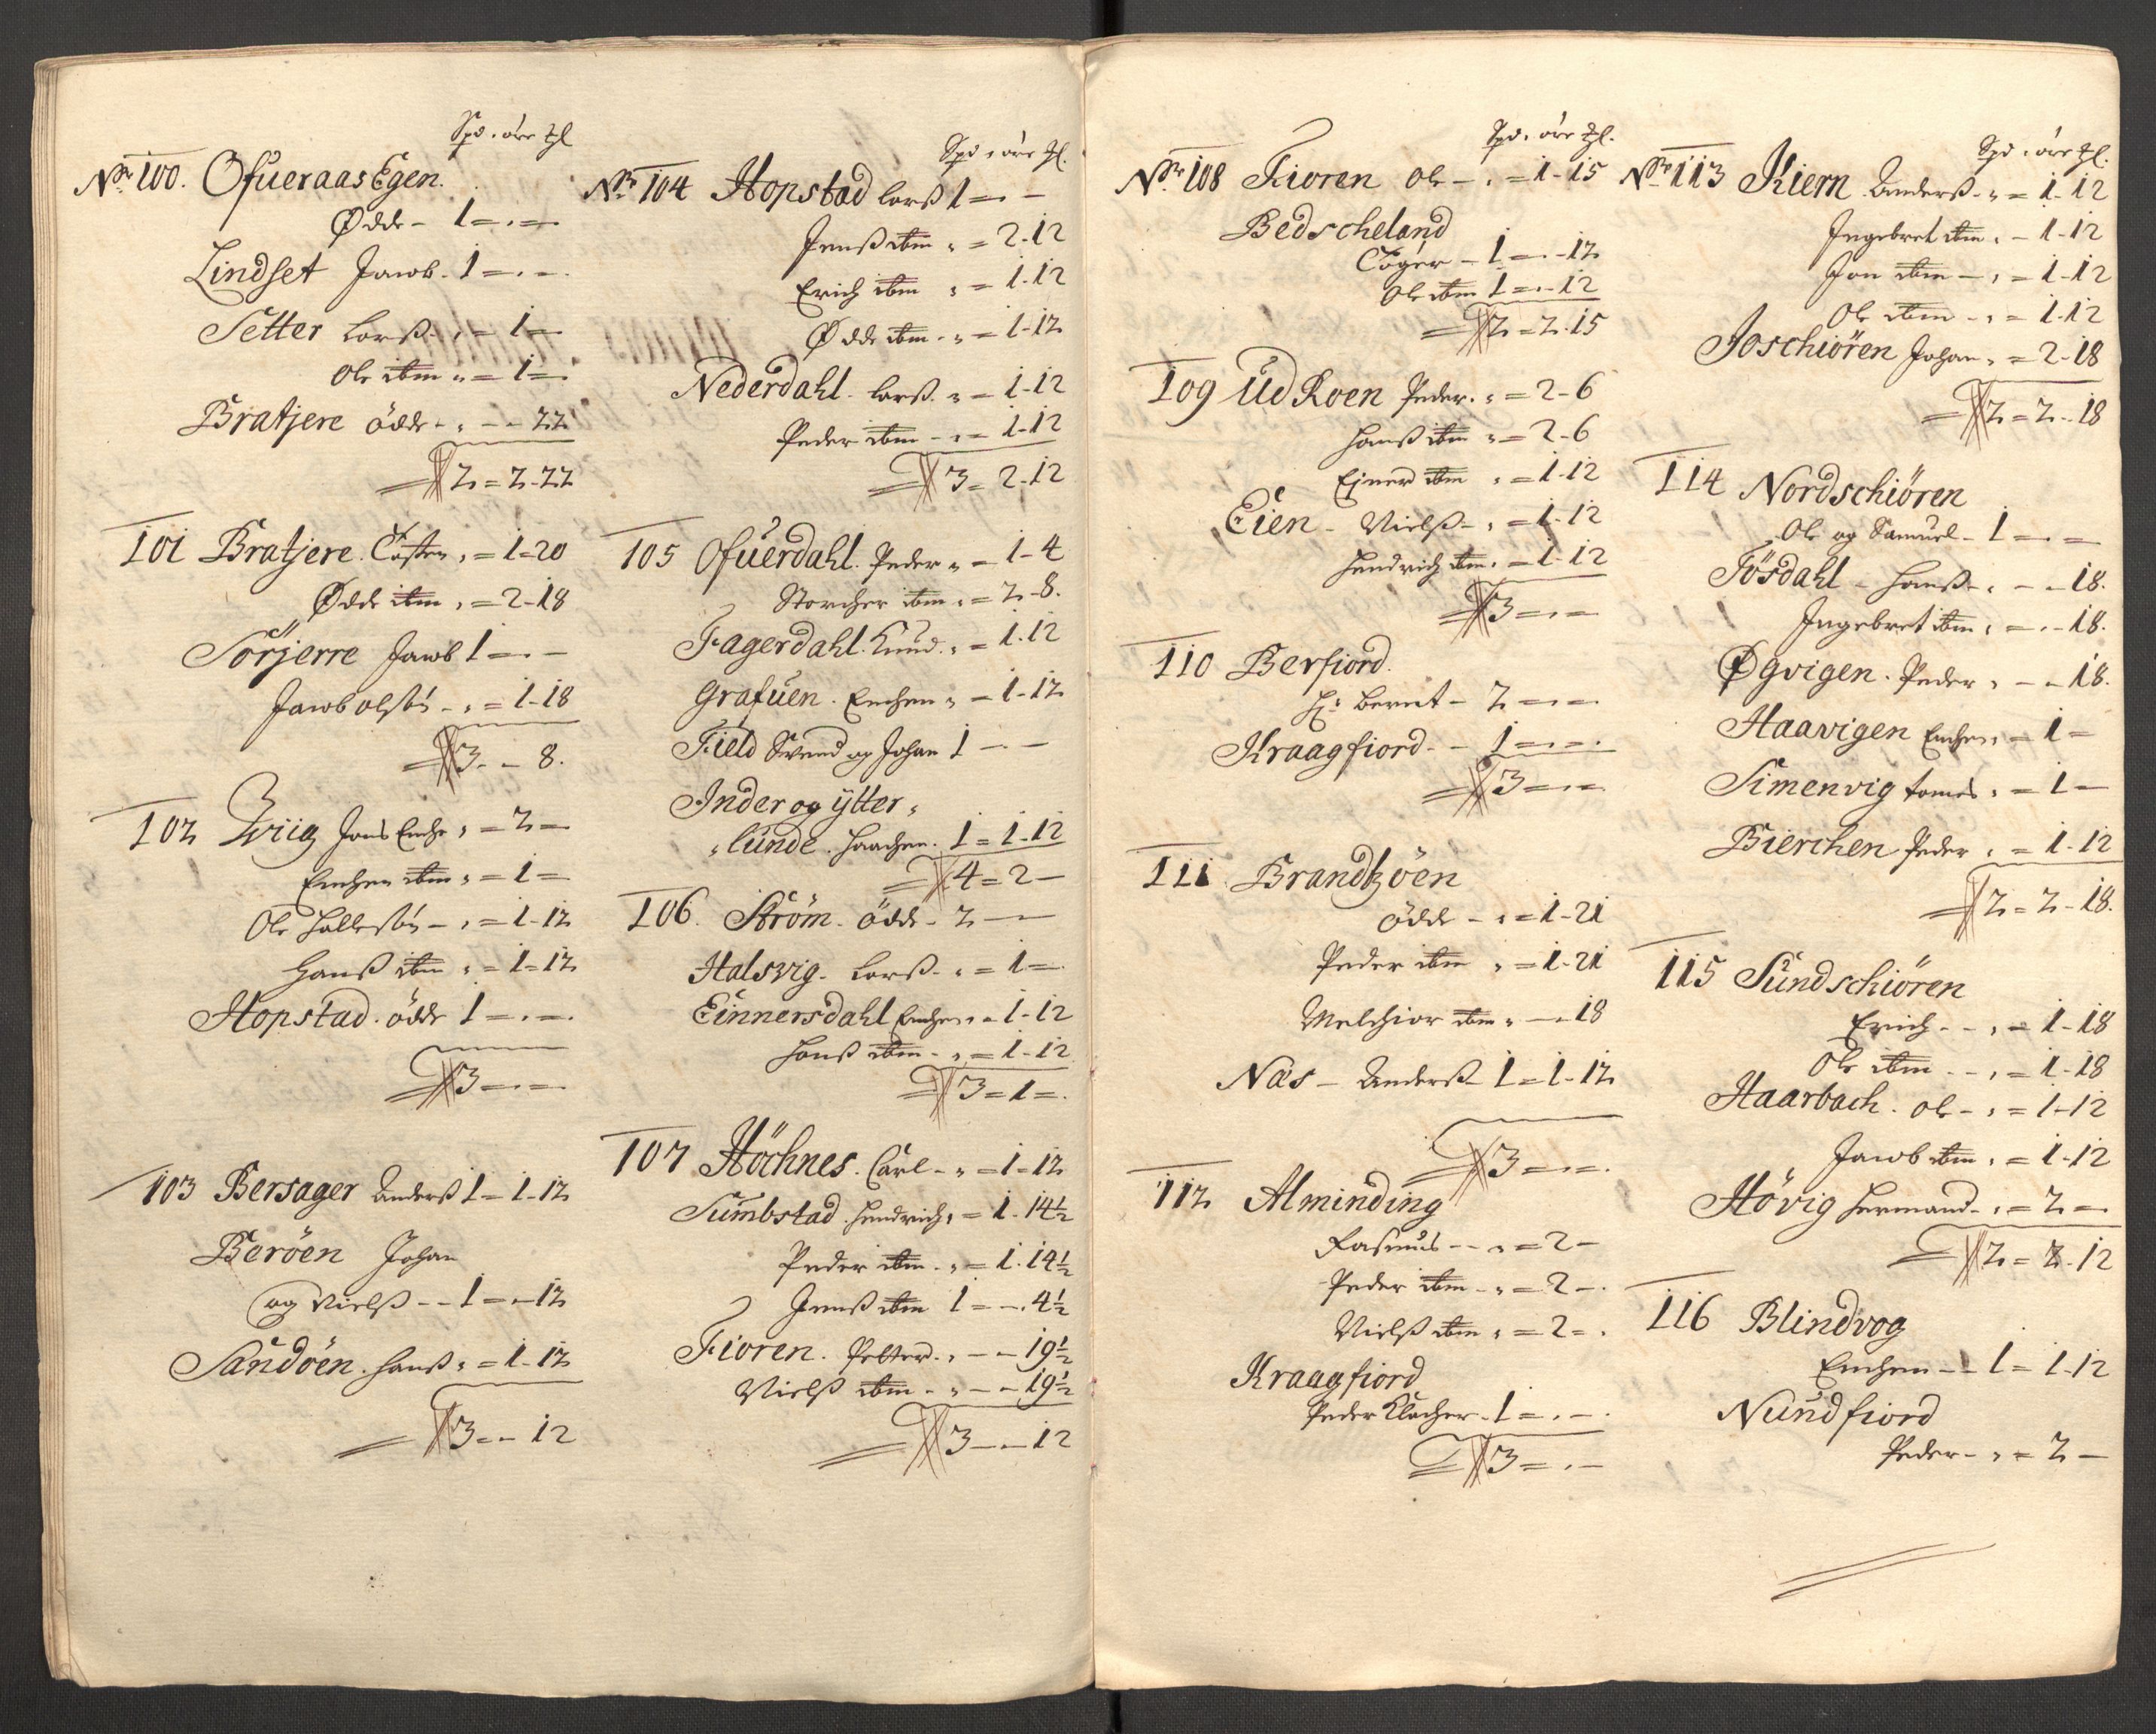 Spd. öre ℔
No 100. Ofueraas Egen.
Ødde - 1 = . =
Lindset Jacob. 1 = . -
Setter Larß - . = 1 =
Ole ibm „ = 1 =
Bratjere ödde - . - - 22
2 = 2 - 22
101 Bratjere. Tosten . = 1 - 20
Ødde ibm . = 2 - 18
Sörjerre Jacob 1 = . -
Jacob olsön - . = 1 - 18
3 - - 8.
102 Jons Emche . = 2 =
Emchen ibm . = 1 =
Ole Hallesön - . = 1 - 12
Hanß ibm . = 1 - 12
Hopstad. ödde 1 = . =
3 = . =
103 Bersager Anderß 1 = 1 - 12
Beröen Johan
og Nielß - - 1 = - 12
Sandöen. Hanß . = 1 - 12
3 - - 12
Spd . öre ℔.
No 104 Hopstad Larß 1 = . -
Jenß ibm „ = 2 - 12
Erich ibm „ = 1 - 12
Ødde ibm . „ = 1 - 12
Nederdahl. Larß . „ = 1 - 12
Peder ibm - „ = 1 - 12
3 = 2 - 12
105 Ofuerdahl. Peder „ = 1 - 4
Storcher ibm . = 2 - 8.
Fagerdahl. Knud . „ = 1 - 12
Grafuen. Emchen „ = 1 - 12
Field Svend og Johan 1 - . -
Inder og ytter„
„lunde. Haachen. 1 = 1 - 12
4 = 2 -
106. Ström. ödde - 2 - -
Halsvig. Larß - „ = 1 =
Einnersdahl Emchen „ = 1 - 12
Hanß ibm - „ = 1 - 12
3 = 1 = .
107 Höchnes. Carl - „ = 1 - 12
Sumbstad. Hendrich „ = 1 - 14½
Peder ibm . „ = 1 - 14½
Jenß ibm 1 = - . 4½
Fioren. Petter . „ - - 19½
Nielß ibm - „ - - 19½
3 - - 12
Spd. öre ℔.
No 108 Fioren Ole - . = 1 - 15
Bedscheland
Töger - 1 = - 12
Ole ibm 1 = - 12
2 = 2 - 15
109 Ud Roen Peder . „ = 2 - 6
Hanß ibm „ = 2 - 6
Ejner ibm „ = 1 - 12
Eien - Nielß - „ = 1 - 12
Hendrich ibm . = 1 - 12
3 = . =
110 Berfiord.
Hr Bernt - 2 = . =
Kraagfiord - - 1 = . = .
3 = . =
111 Brandtzöen
ödde - „ = 1 - 21
Peder ibm „ = 1 - 21
Melchior ibm „ - - 18
Nas - Anderß - 1 = 1 - 12
3 = . = .
112 Alminding
Rasmus - - „ = 2 -
Peder ibm - „ = 2 - .
Nielß ibm „ = 2 = .
Kraagfiord
Peder Klöcher - 1 = . - .
3 = . -
Spd . öre ℔.
No 113 Kiern Anderß - „ = 1 - 12
Ingebret ibm . - 1 - 12
Jon ibm - „ = 1 - 12
Ole ibm - „ = 1 - 12
Joschiören Johan „ = 2 - 18
2 = 2 - 18
114 Nordschiören
Ole og Samuel - 1 = . =
Tösdahl - Hanß - . - - 18.
Ingebret ibm . = . - 18.
Øgvigen. Peder „ - - 18.
Haavigen Emchen „ = 1 =
Simenvig tomes . = 1 -
Bierchen Peder „ = 1 - 12
2 = 2 - 18.
115 Sundschiören
Erich - - „ = 1 - 18
Ole ibm - - „ = 1 - 18
Haarbach. Ole - „ = 1 - 12
Jacob ibm . = 1 - 12
Hövig Hermand - „ = 2 =
2 = 2 - 12
116 Blindvog
Emchen - - 1 = 1 - 12
Nundfiord
Peder - „ = 2 -